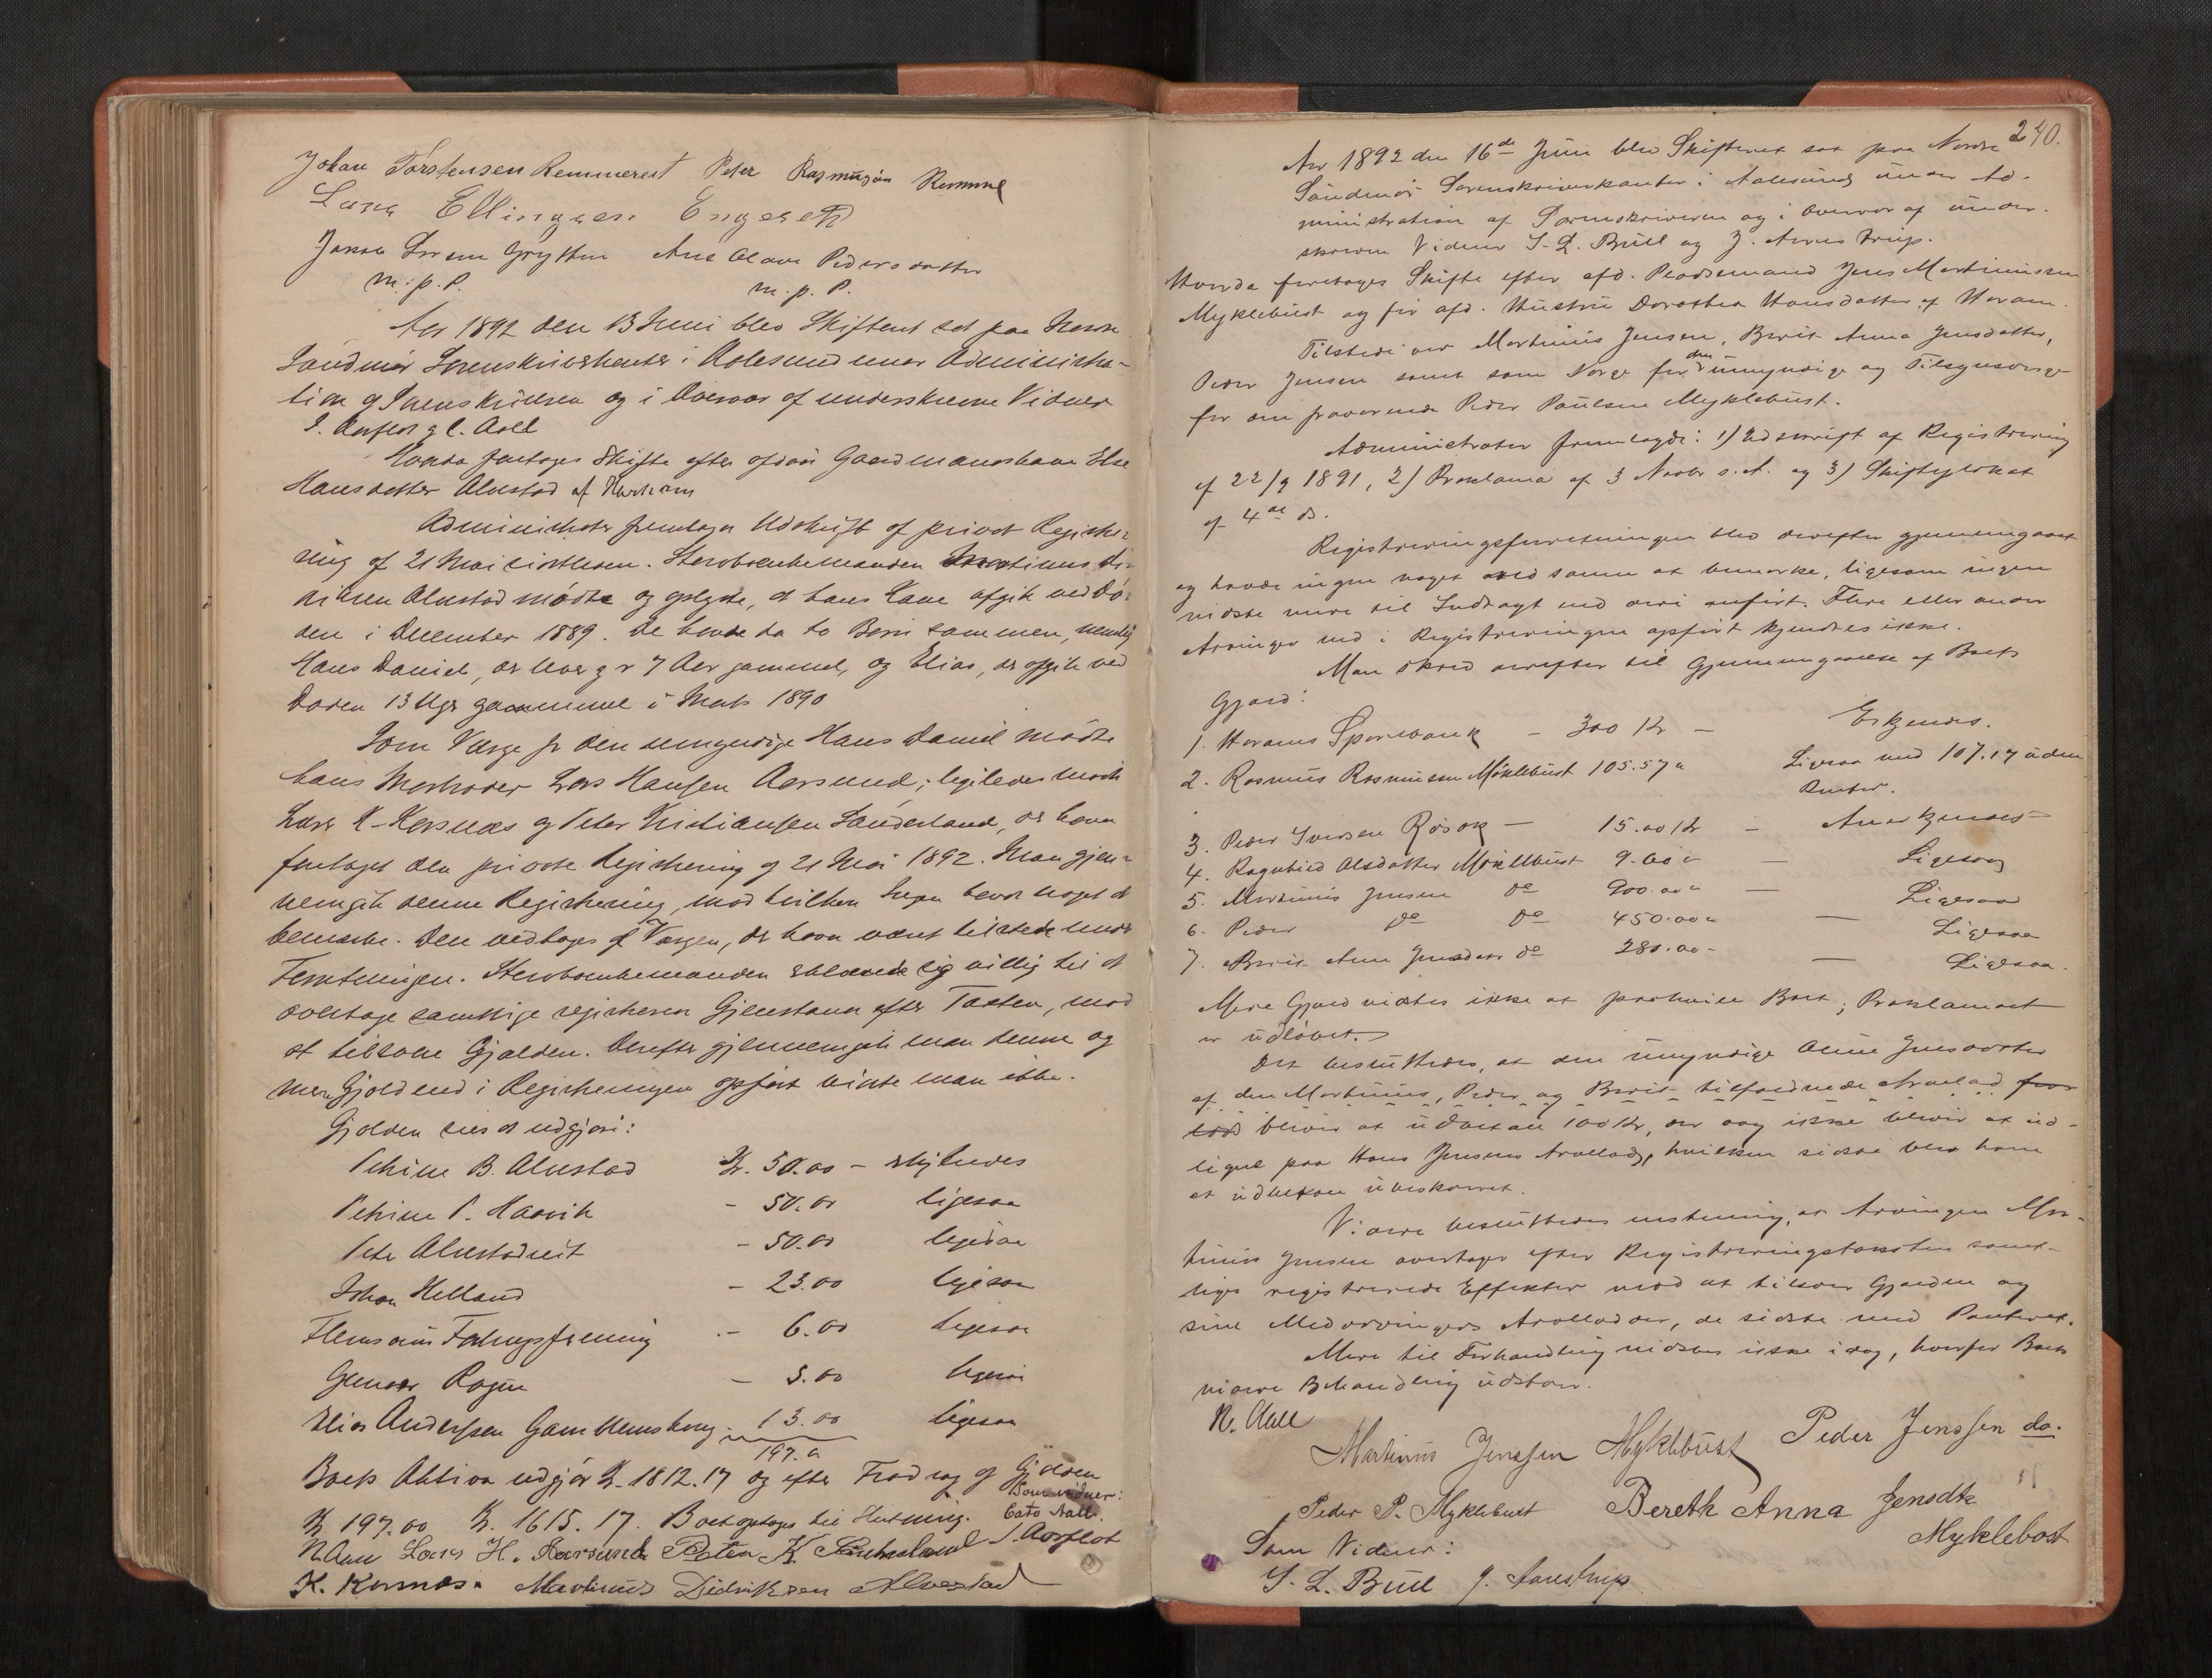 Johan Torstensen Remmereit Peter Rasmusson Remme
Lars Ellingsen Engeset
Jakob Grytten Ane Olave Pedersdatter
m. p. P. m. p. P.
Aar 1892 den 13 Juni blev Skifteret sat paa Nordre
Søndmør Sorenskriverkontor i Aalesund under Administra-
tion af Sorenskriveren og i Overvær af underskrevne Vidner
J. Aarflot og C. Aall
Hvorda foretages Skifte efter afdøde Gaardmandskone Else
Hansdatter Alvestad af Harham
Administrator fremlagde Udskrift af privat Registre-
ring af 21 Mai sidstleden. Stervboenkemanden Martinus Di-
driksen Alvestad mødte og oplyste, at hans Kone afgik ved Dø-
den i December 1889. De havde da to Børn sammen, nemlig
Hans Daniel, der lever og er 7 Aar gammel, og Elias, der afgik ved
Døden 13 Uger gammel i Marts 1890
Som Værge for den umyndige Hans Daniel mødte
hans Morbroder Lars Hansen Aarsund; ligeledes mødte
K. Korsnæs og Peter Kristiansen Sønderland, der havde
foretaget den private Registrering af 21 Mai 1892. Man gjen-
nemgik denne Registrering, mod hvilken Ingen havde noget at
bemærke. Den vedtoges af Værgen, der havde været tilstede under
Forretningen. Stervboenkemanden erklærede sig villig til at
overtage samtlige registrerede Gjenstande efter Taxten, mod
at tilsvare Gjælden. Derefter gjennemgik man denne og
mere Gjæld end i Registreringen opført vidste man ikke.
Gjælden sees at udgjøre:
Petrine B. Alvestad Kr. 50.00 - erkjendes
Petrine P. Haavik - 50.00 ligesaa
Peter Alvestadreit - 50.00 ligesaa
Johan Helland - 23.00 ligesaa
- 6.00 ligesaa
Gunder Rogne - 5.00 ligesaa
Elias Anderssen Gamlemsborg - 13.00 ligesaa
197.00
Boets Aktiva udgjør Kr. 1812.17 og efter Fradrag af Gjælden
Som vidner:
Kr 197.00 Kr. 1615.17. Boet optages til Slutning. Cato Aall.
N Aall Lars H. Aarsund Peter K. J. Aarflot
K. Kornæs. Martinus Didriksen Alvestad
240.
Aar 1892 den 16de Juni blev Skifteret sat paa Nordre
Søndmør Sorenskriverkontor i Aalesund under Ad-
ministration af Sorenskriveren og i Overvær af under-
skrevne Vidner S. L. Bull og J. Aarestrup.
Hvorda foretages Skifte efter afd. Pladsemand Jens Martinussen
Myklebust og før afd. Hustru Dorothea Hansdatter af Haram.
Tilstede var Martinus Jensen, Berit Anna Jensdatter,
Peder Jensen samt som Værge for den umyndige og Tilsynsværge
for den fraværende Peder Paulsen Myklebust.
Administrator fremlagde: 1) Udskrift af Registrering
af 22/9 1891, 2) Proklama af 3 Novbr s. A. og 3) Skifteplakat
af 4de ds.
Registreringsforretningen blev derefter gjennemgaaet
og havde ingen noget ved samme at bemærke, ligesom ingen
vidste mere til Indtægt end deri anført. Flere eller andre
Arvinger end i Registreringen opført kjendtes ikke.
Man skred derefter til Gjennemgaaelse af Boets
Gjæld:
1. Harams Sparebank - 300 Kr - Erkjendes.
2. Rasmus Rasmussen Møklebust 105.57 " Ligesaa med 107.17 uden
Renter.
3. Peder Iversen Røsok - 15.00 Kr - Anerkjendes
4. Ragnhild Olsdatter Møklebust 9.60 " — Ligesaa
5. Martinus Jensen do 900.00 " — Ligesaa
6. Peder do do 450.00 " — Ligesaa
7. Berit Anna Jensdatter do 280.00 - — Ligesaa.
Mere Gjæld vidstes ikke at paahvile Boet; Proklamaet
er udløbet.
Det besluttedes, at den umyndige Oline Jensdatter
af den Martinus, Peder og Berit tilfaldende Arvelod for
lods bliver at udbetale 100 Kr, der dog ikke bliver at ud-
ligne paa Hans Jensens Arvelod, hvilken sidste blev ham
at udbetale ubeskaaret.
Videre besluttedes, at Arvingen Mar-
tinus Jensen overtager efter Registreringstaksten samt-
lige registrerede Effekter mod at tilsvare Gjælden og
sine Medarvingers Arvelodder, de sidste med Panteret.
Mere til Forhandling vidstes ikke idag, hvorfor Boets
videre Behandling udstaar.
N. Aall
Martinus Jenssen Myklebust Peder Jenssen do.
Peder P. Myklebust Bereth Anna Jensdtr
Myklebost
Som Vidner:
S. L. Bull J. Aarestrup